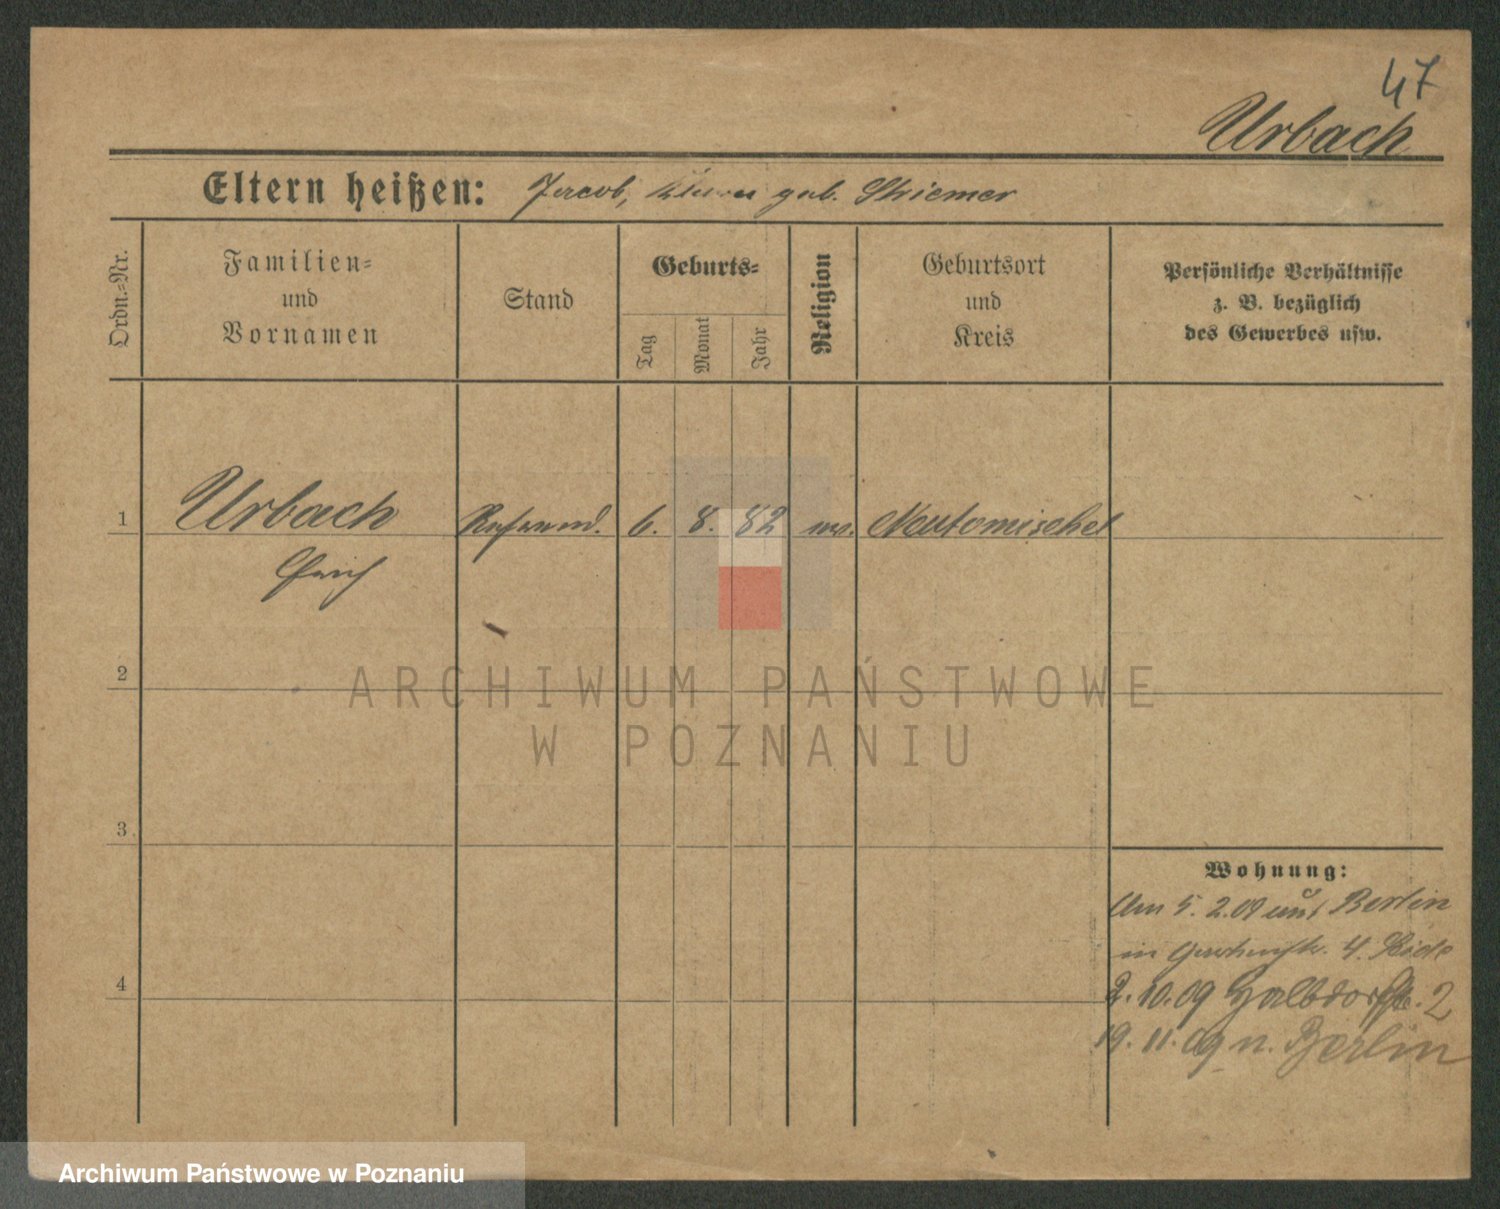 47
Urbach
Eltern heißen: Jacob, geb. Striemer
Ordn.-Nr.
Familien-
und
Vornamen
Stand
Geburts-
Tag
Monat
Jahr
Religion
Geburtsort
und
Kreis
Persönliche Verhältnisse
z. B. bezüglich
des Gewerbes usw.
1
Urbach
Referend. 6. 8. 82 mos. Neutomischel
Erich
2
3
4
Wohnung:
Am 5. 2.09 aus Berlin
in 4. Side
2.10.09 Halbdorfstr. 2
19.11.09 n. Berlin
ARCHIWUM PAŃSTWOWE
W POZNANIU
Archiwum Państwowe w Poznaniu